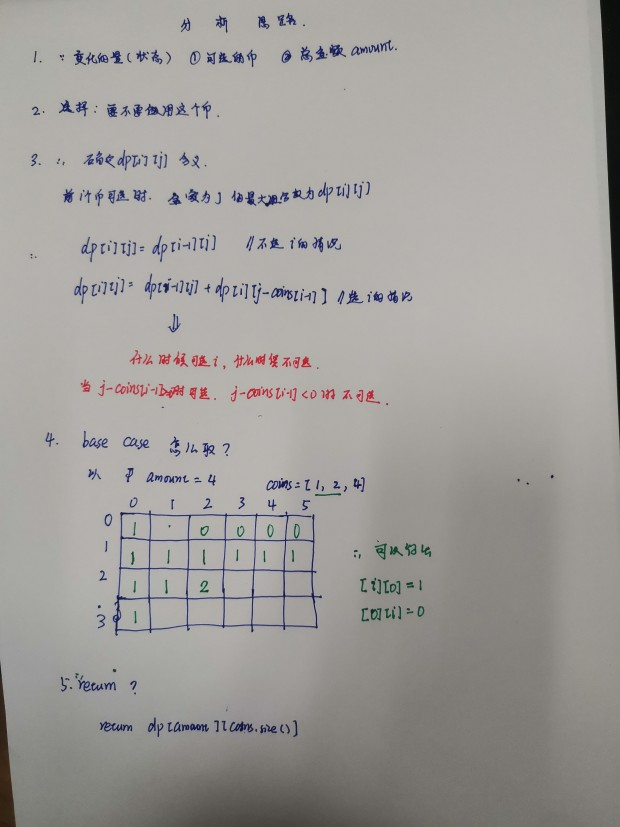 分析思路.
1. ∵ 变化的量(状态) ① 可选的币 ② 总金额 amount.
2. 选择: 要不要使用这个币.
3. ∴ 石角定dp[i][j] 含义.
前i个币可选时. 金额为j 的最大组合数为dp[i][j]
∴ dp[i][j] = dp[i-1][j] //不选i的情况
dp[i][j] = dp[i-1][j] + dp[i][j-coins[i-1]] //选i的情况
⇓
什么时候可选i, 什么时候不可选.
当 j-coins[i-1]≥0时可选. j-coins[i-1]<0时不可选.
4. base case 怎么取?
以 amount = 4 coins = [1, 2, 4]
0 1 2 3 4 5
0 1 · 0 0 0 0
1 1 1 1 1 1 1
2 1 1 2
3 1
∴ 可以得出
[i][0] = 1
[0][i] = 0
5. return ?
return dp[amount][coins.size()]